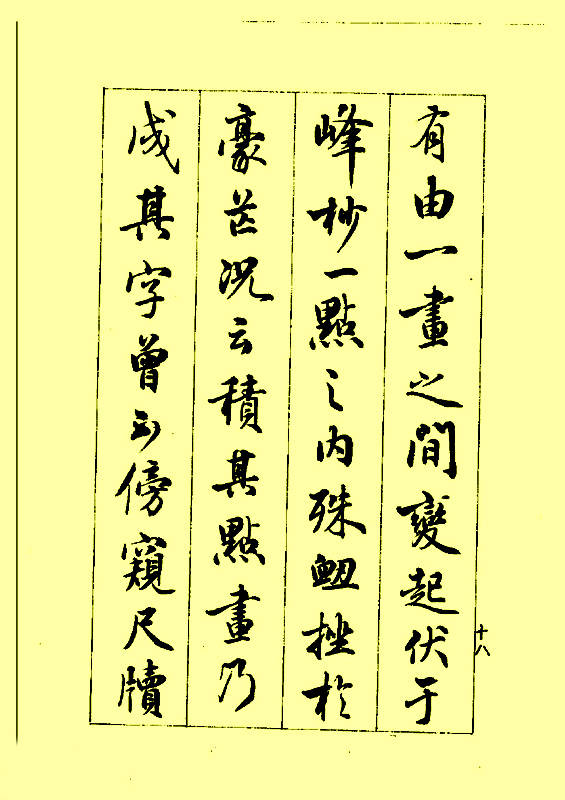 有由一畫之間變起伏于
峰杪一點之内殊衄挫於
豪芒況云積其點畫乃
成其字曾不傍窺尺牘
十八